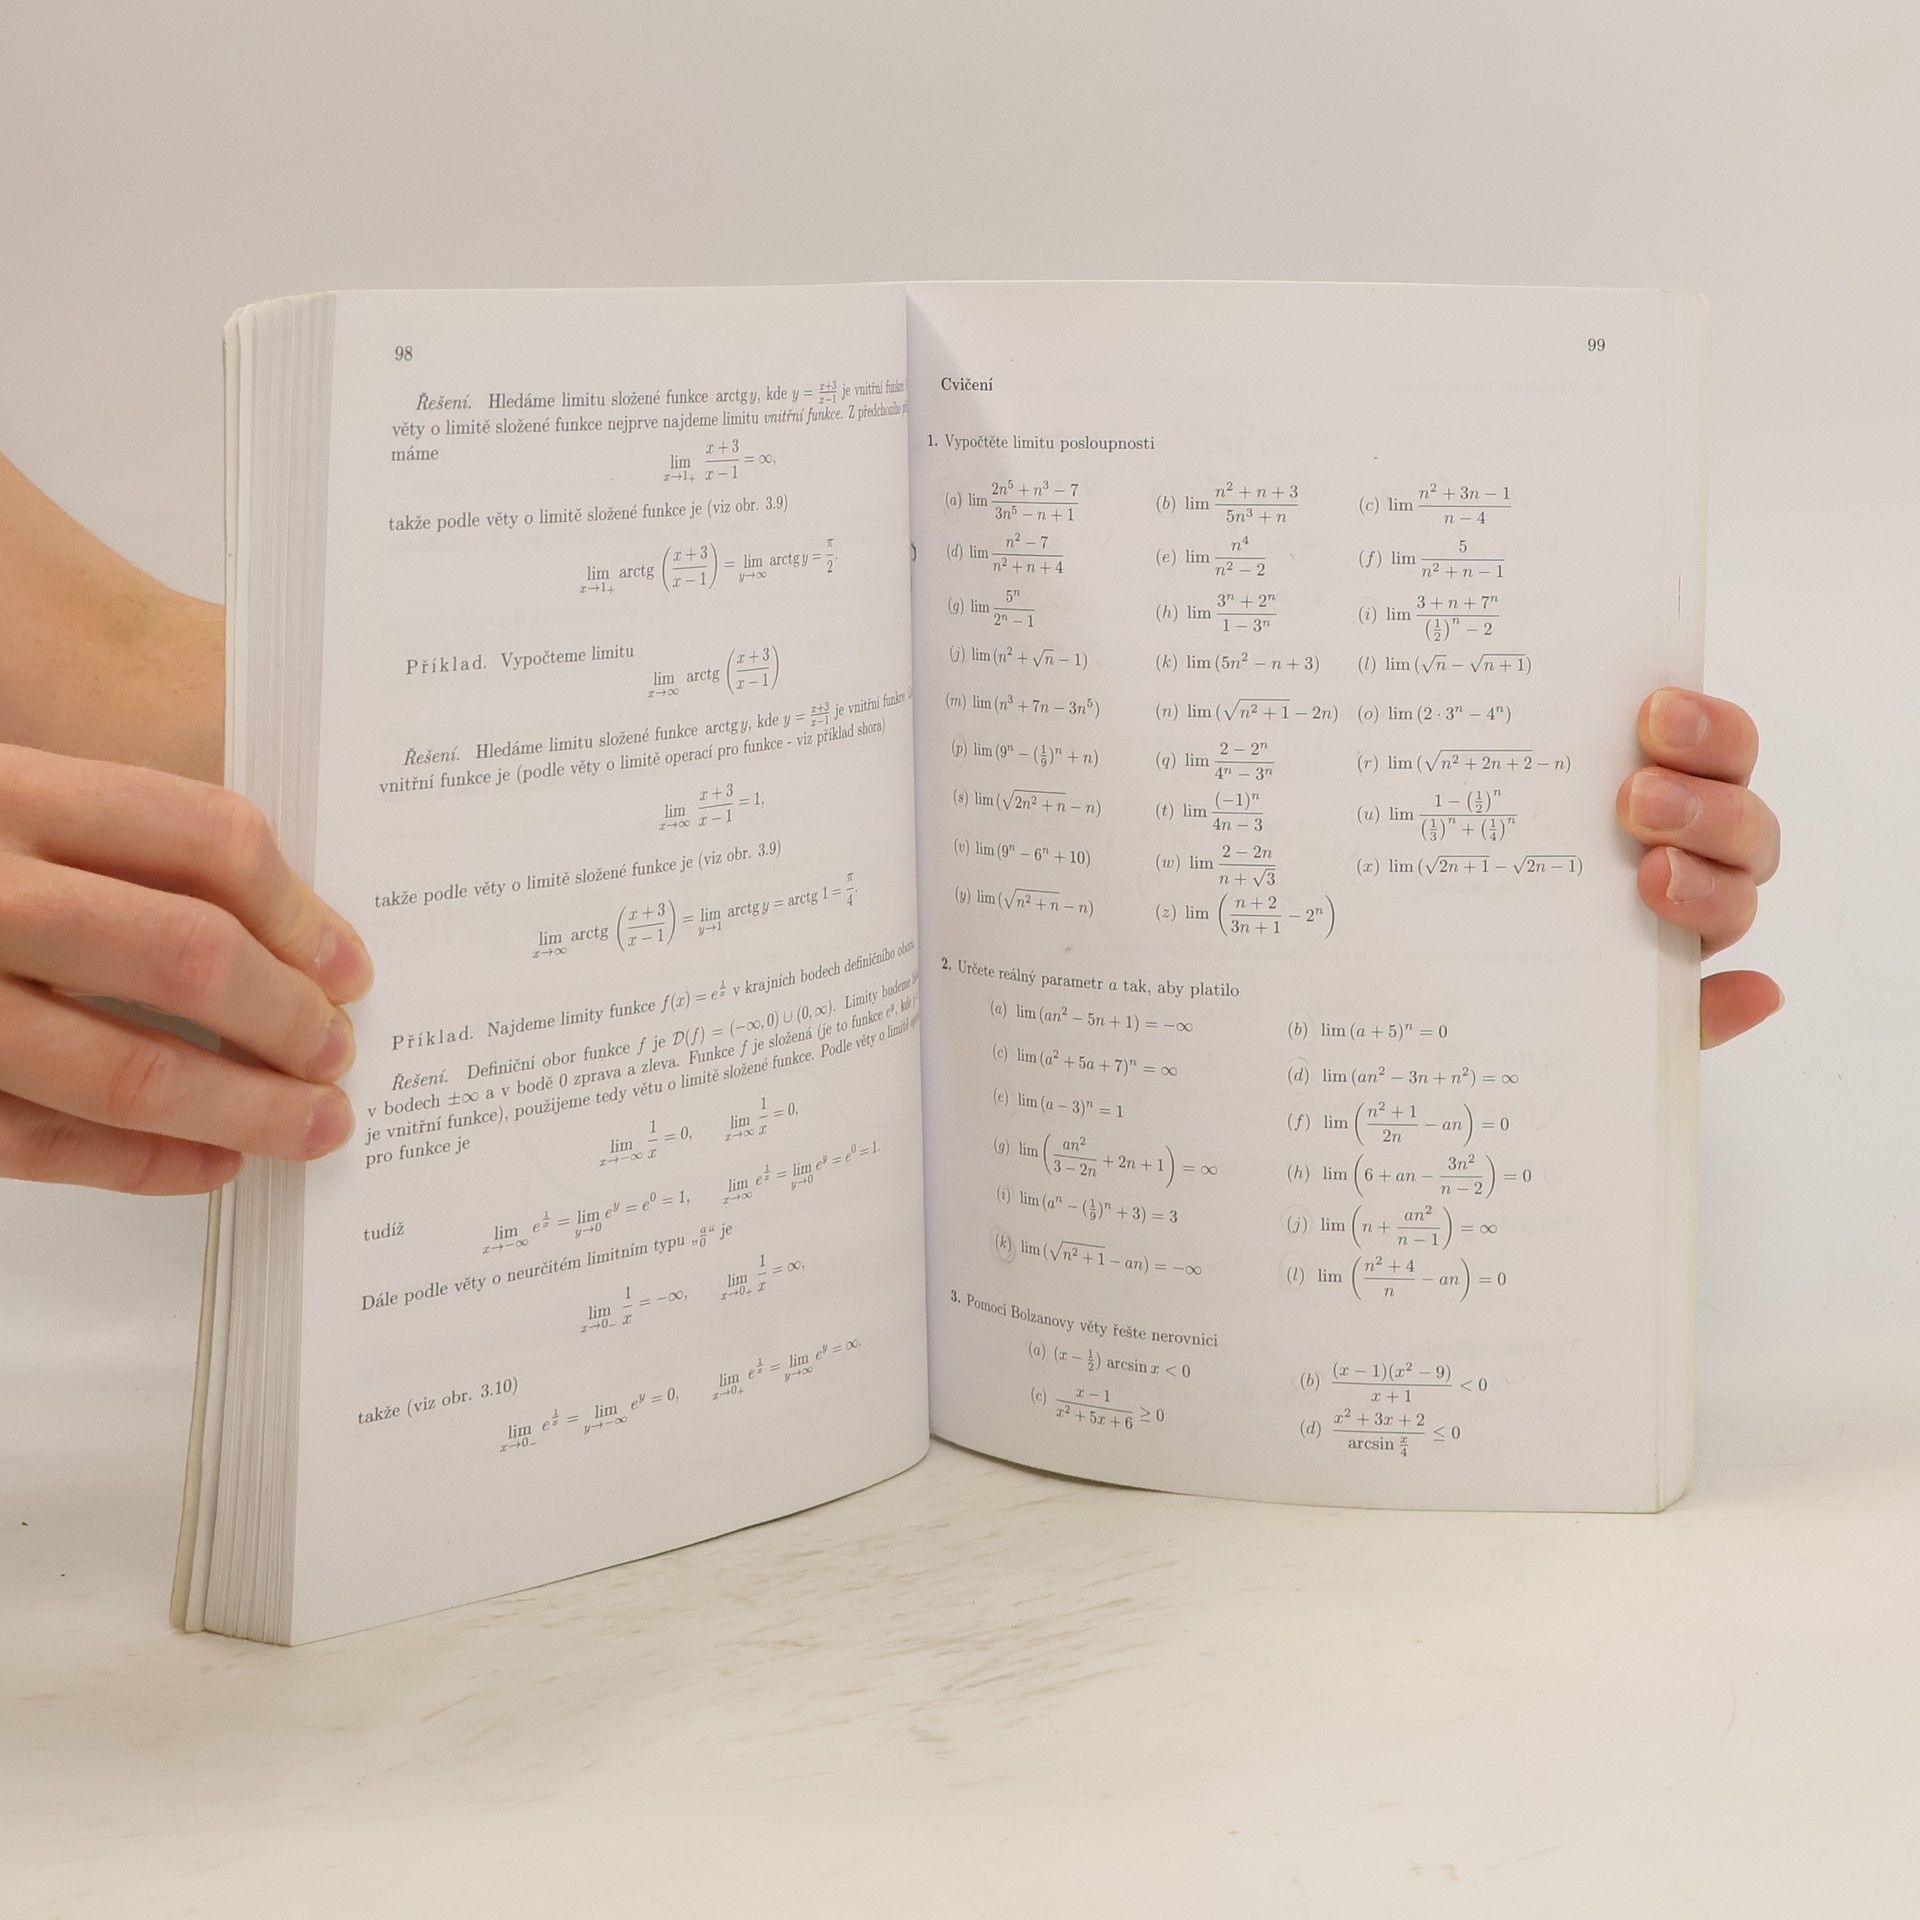 98
Řešení. Hledáme limitu složené funkce arctg y, kde y = \frac{x+3}{x-1} je vnitřní funkce
věty o limitě složené funkce nejprve najdeme limitu vnitřní funkce. Z předchozího
máme
\lim_{x→1_+} \frac{x+3}{x-1} = ∞,
takže podle věty o limitě složené funkce je (viz obr. 3.9)
\lim_{x→1_+} arctg (\frac{x+3}{x-1}) = \lim_{y→∞} arctg y = \frac{π}{2}.
Příklad. Vypočteme limitu
\lim_{x→∞} arctg (\frac{x+3}{x-1})
Řešení. Hledáme limitu složené funkce arctg y, kde y = \frac{x+3}{x-1} je vnitřní funkce.
vnitřní funkce je (podle věty o limitě operací pro funkce - viz příklad shora)
\lim_{x→∞} \frac{x+3}{x-1} = 1,
takže podle věty o limitě složené funkce je (viz obr. 3.9)
\lim_{x→∞} arctg (\frac{x+3}{x-1}) = \lim_{y→1} arctg y = arctg 1 = \frac{π}{4}.
Příklad. Najdeme limity funkce f(x) = e^{\frac{1}{x}} v krajních bodech definičního oboru.
Řešení. Definiční obor funkce f je D(f) = (-∞, 0) ∪ (0, ∞). Limity budeme
v bodech ±∞ a v bodě 0 zprava a zleva. Funkce f je složená (je to funkce e^y, kde
je vnitřní funkce), použijeme tedy větu o limitě složené funkce. Podle věty o limitě
pro funkce je
\lim_{x→-∞} \frac{1}{x} = 0, \lim_{x→∞} \frac{1}{x} = 0,
tudíž
\lim_{x→-∞} e^{\frac{1}{x}} = \lim_{y→0} e^y = e^0 = 1, \lim_{x→∞} e^{\frac{1}{x}} = \lim_{y→0} e^y = e^0 = 1.
Dále podle věty o neurčitém limitním typu „\frac{a}{0}“ je
\lim_{x→0_-} \frac{1}{x} = -∞, \lim_{x→0_+} \frac{1}{x} = ∞,
takže (viz obr. 3.10)
\lim_{x→0_-} e^{\frac{1}{x}} = \lim_{y→-∞} e^y = 0, \lim_{x→0_+} e^{\frac{1}{x}} = \lim_{y→∞} e^y = ∞.
99
Cvičení
1. Vypočtěte limitu posloupnosti
(a) lim \frac{2n^5 + n^3 - 7}{3n^5 - n + 1} (b) lim \frac{n^2 + n + 3}{5n^3 + n} (c) lim \frac{n^2 + 3n - 1}{n - 4}
(d) lim \frac{n^2 - 7}{n^2 + n + 4} (e) lim \frac{n^4}{n^2 - 2} (f) lim \frac{5}{n^2 + n - 1}
(g) lim \frac{5^n}{2^n - 1} (h) lim \frac{3^n + 2^n}{1 - 3^n} (i) lim \frac{3 + n + 7^n}{(\frac{1}{2})^n - 2}
(j) lim (n^2 + √n - 1) (k) lim (5n^2 - n + 3) (l) lim (√n - \sqrt{n+1})
(m) lim (n^3 + 7n - 3n^5) (n) lim (\sqrt{n^2+1} - 2n) (o) lim (2 · 3^n - 4^n)
(p) lim (9^n - (\frac{1}{9})^n + n) (q) lim \frac{2 - 2^n}{4^n - 3^n} (r) lim (\sqrt{n^2 + 2n + 2} - n)
(s) lim (\sqrt{2n^2 + n} - n) (t) lim \frac{(-1)^n}{4n - 3} (u) lim \frac{1 - (\frac{1}{2})^n}{(\frac{1}{3})^n + (\frac{1}{4})^n}
(v) lim (9^n - 6^n + 10) (w) lim \frac{2 - 2n}{n + √3} (x) lim (\sqrt{2n+1} - \sqrt{2n-1})
(y) lim (\sqrt{n^2 + n} - n) (z) lim (\frac{n+2}{3n+1} - 2^n)
2. Určete reálný parametr a tak, aby platilo
(a) lim (an^2 - 5n + 1) = -∞ (b) lim (a + 5)^n = 0
(c) lim (a^2 + 5a + 7)^n = ∞ (d) lim (an^2 - 3n + n^2) = ∞
(e) lim (a - 3)^n = 1 (f) lim (\frac{n^2+1}{2n} - an) = 0
(g) lim (\frac{an^2}{3-2n} + 2n + 1) = ∞ (h) lim (6 + an - \frac{3n^2}{n-2}) = 0
(i) lim (a^n - (\frac{1}{9})^n + 3) = 3 (j) lim (n + \frac{an^2}{n-1}) = ∞
(k) lim (\sqrt{n^2+1} - an) = -∞ (l) lim (\frac{n^2+4}{n} - an) = 0
3. Pomocí Bolzanovy věty řešte nerovnici
(a) (x - \frac{1}{2}) arcsin x < 0 (b) \frac{(x-1)(x^2-9)}{x+1} < 0
(c) \frac{x-1}{x^2+5x+6} ≥ 0 (d) \frac{x^2+3x+2}{arcsin \frac{x}{4}} ≤ 0